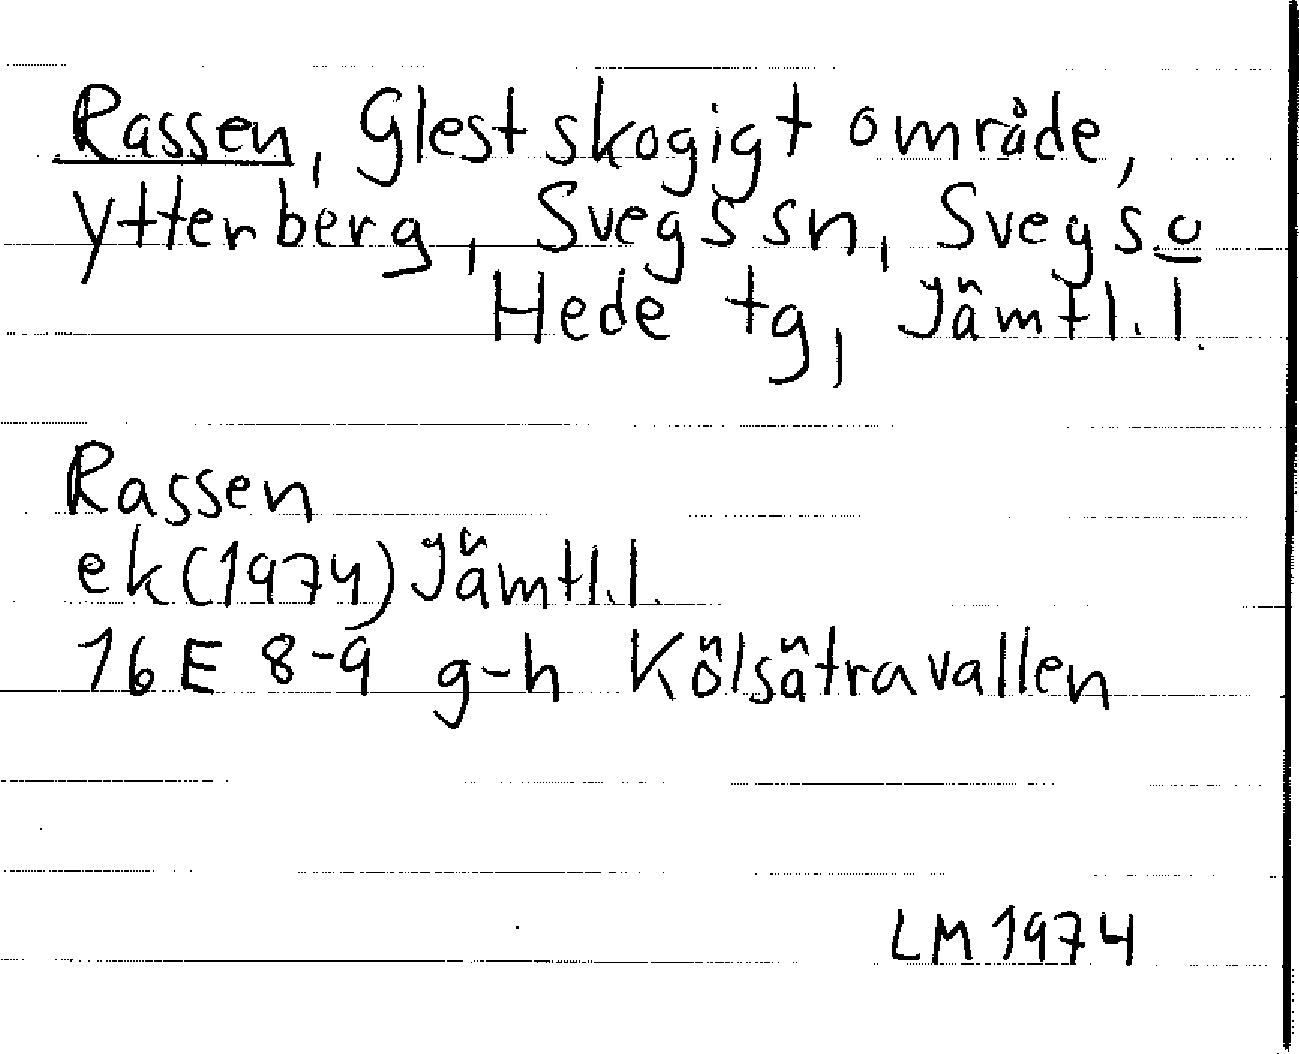 Rassen, Glest skogigt område,
Ytterberg, Svegs sn, Svegs o
Hede tg, Jämtl. l.
Rassen
ek (1974) Jämtl. l.
16 E 8-9 g-h Kölsätravallen
LM 1974